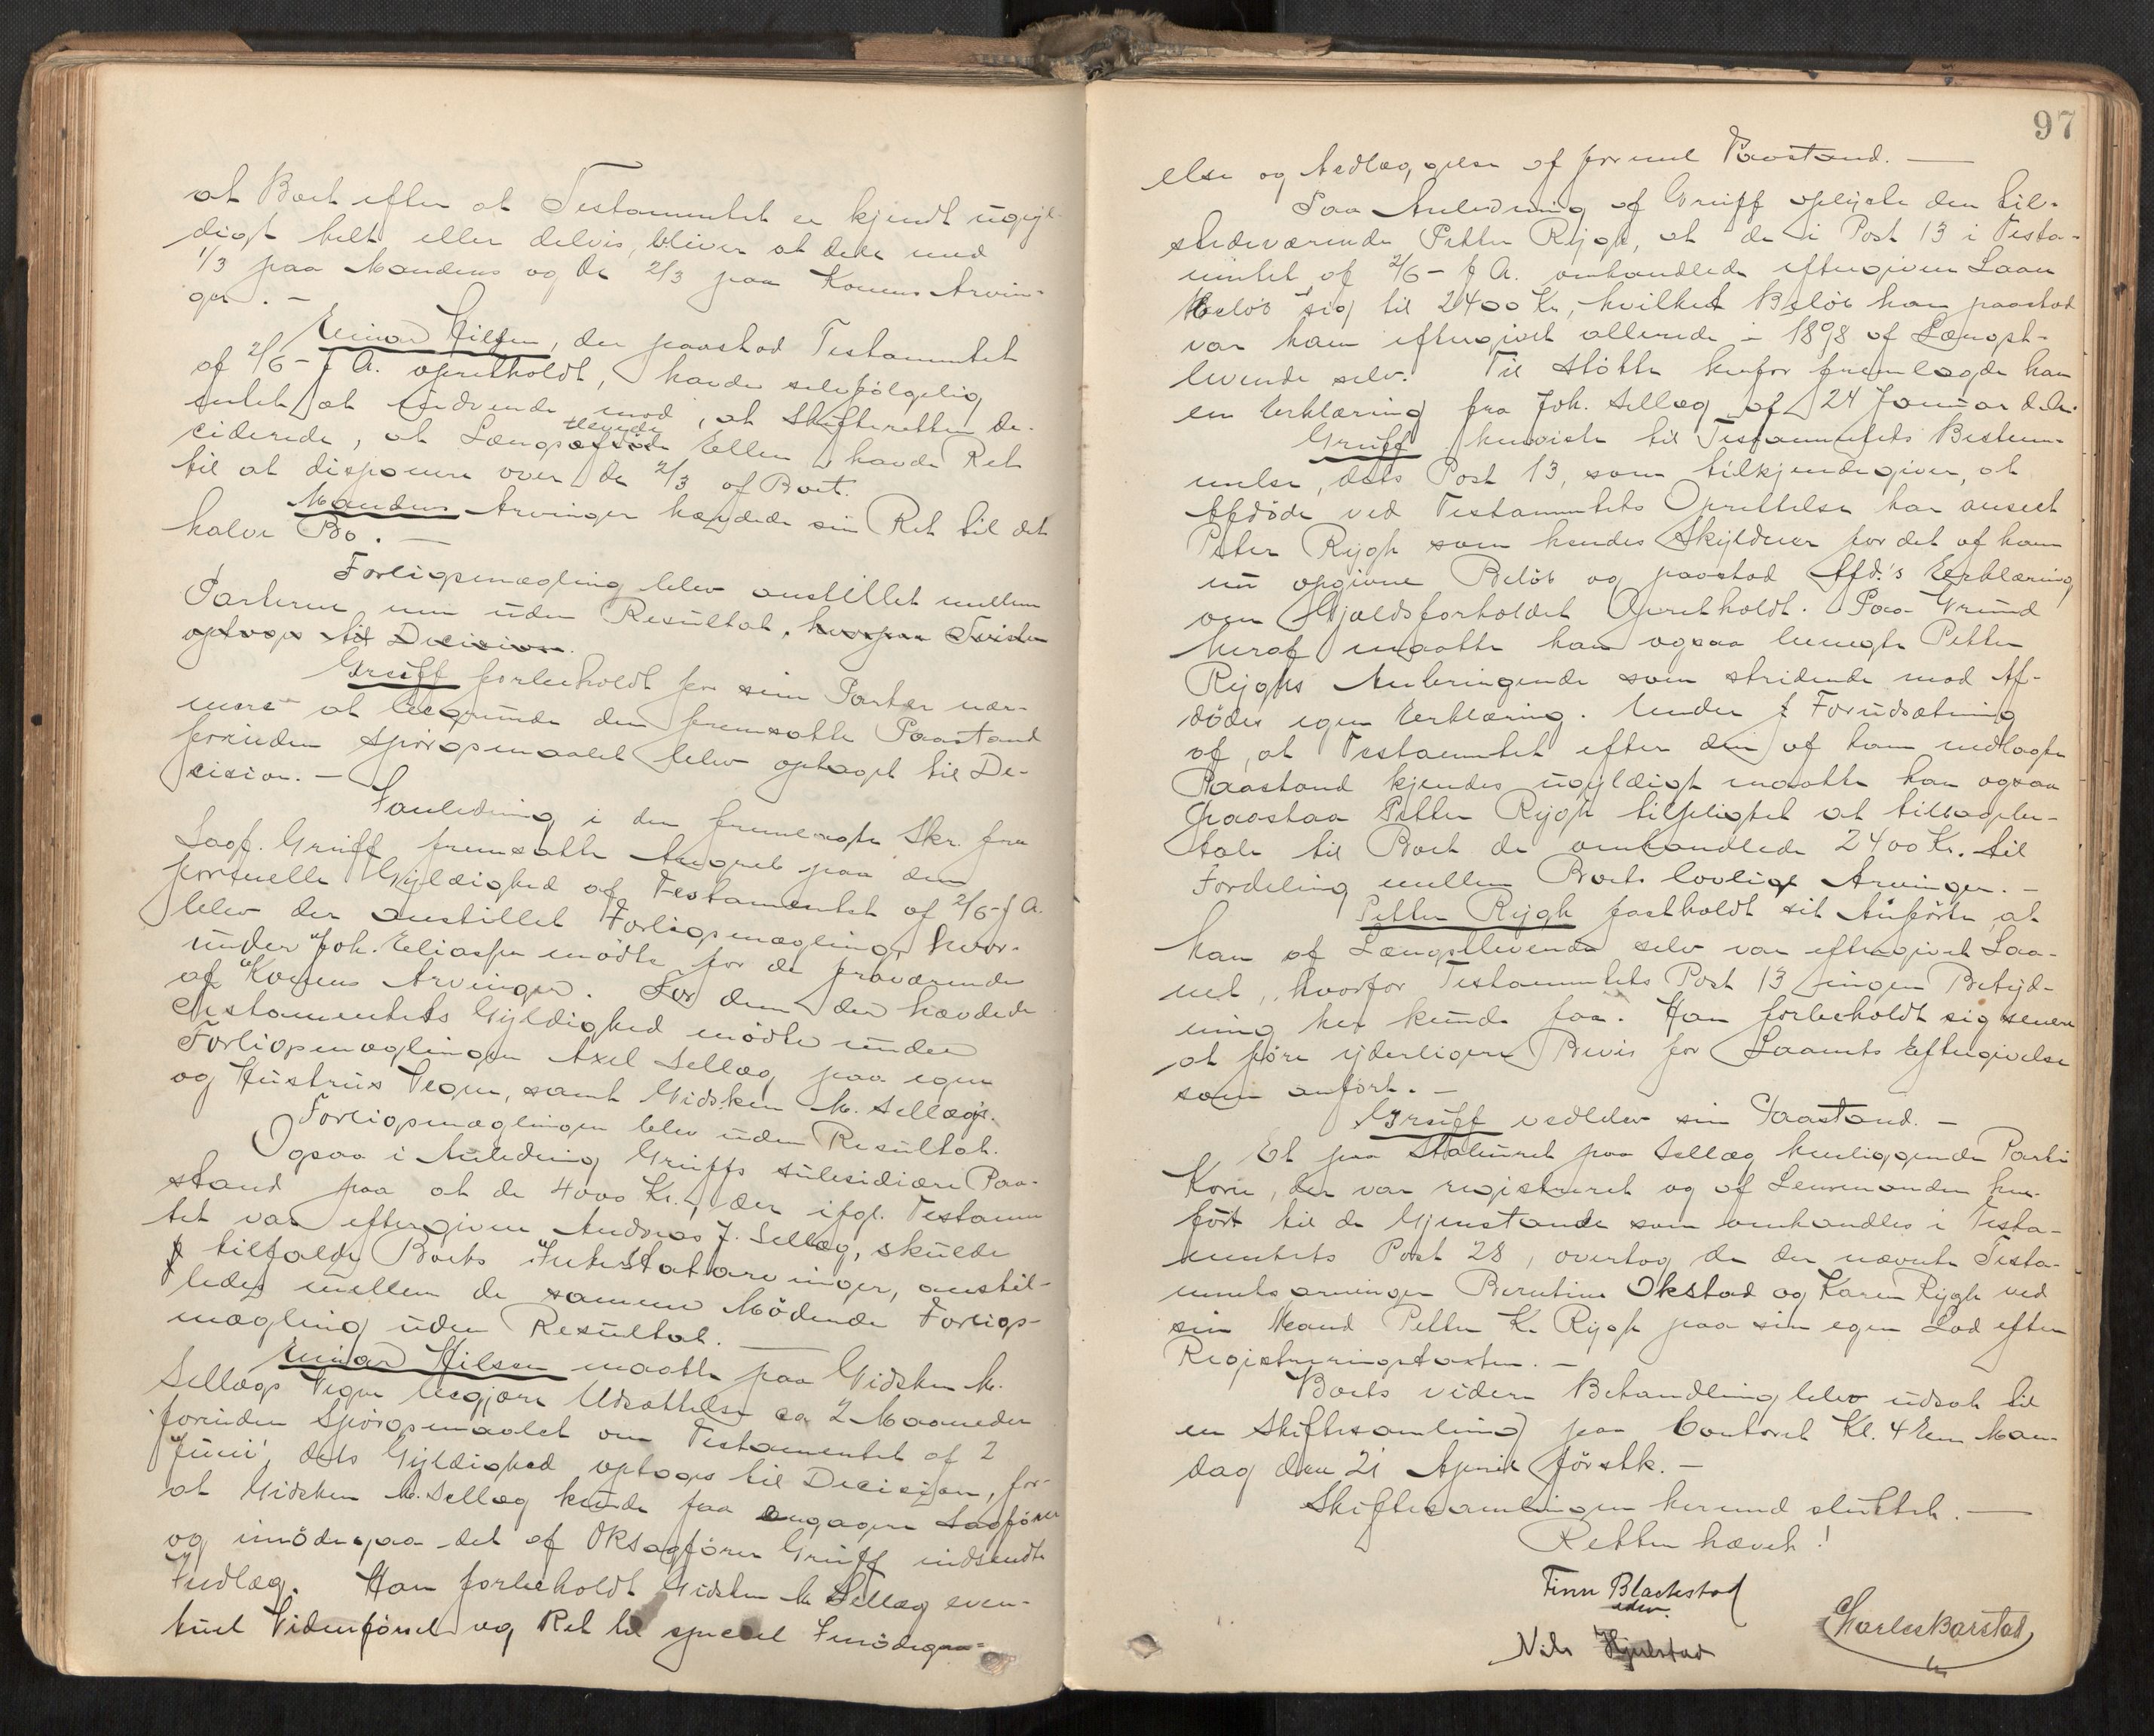 at Boet efter at Testamentet er kjendt ugyl-
digt helt eller delvis, bliver at dele med
1/3 paa Mandens og de 2/3 paa Konens Arvin-
ger. -
Einar Hilsen, der paastod Testamentet
af 2/6 - f A. opretholdt, havde selvfølgelig
intet at indvende mod, at Skifteretten de-
ciderede, at Længstlevende Ellen havde Ret
til at disponere over de 2/3 af Boet.
Mandens Arvinger hævdede sin Ret til det
halve Bo. -
Forligsmægling blev anstillet mellem
Parterne men uden Resultat, hvorpaa Tvisten
optoges til Decision.
Gruff forbeholdt for sine Parter nær-
mere at begrunde den fremsatte Paastand
forinden Spørgsmaalet blev optaget til De-
cision. -
I anledning i den fremlagte Skr. fra
Sagf. Gruff fremsatte Angreb paa den
formelle Gyldighed af Testamentet af 2/6 - f A.
blev der anstillet Forligsmægling, hvor-
under Joh. Eliassen mødte for de fraværende
af Konens Arvinger. For dem der hævdede
Testamentets Gyldighed mødte under
Forligsmæglingen Axel Sellæg paa egen
og Hustrus Vegne, samt Gidsken M. Sellæg.
Forligsmæglingen blev uden Resultat.
Ogsaa i Anledning Gruffs subsidiære Paa-
stand paa at de 4000 Kr., der ifgl. Testamen
tet var eftergivne Andreas J. Sellæg, skulde
tilfalde Boets Intestatarvinger, anstil-
ledes mellem de samme Mødende Forligs-
mægling uden Resultat.
Einar Hilsen maatte paa Gidsken M.
Sellægs Vegne begjære Udsættelse ca 2 Maaneder
forinden Spørgsmaalet om Testamentet af 2
Juni, dets Gyldighed optages til Decision, for
at Gidsken M. Sellæg kunde faa engagere Sagfører
og imødegaa det af OKsagfører Gruff indsendte
Indlæg. Han forbeholdt Gidsken M Sellæg even-
tuel Vidneførsel og Ret til speciel Imødegaa-
97
else og Nedlæggelse af formel Paastand. -
Paa Anledning af Gruff oplyste den til-
stedeværende Petter Rygh, at de i Post 13 i Testa-
mentet af 2/6 - f A. omhandlede eftergivne Laan
beløb sig til 2400 Kr., hvilket Beløb han paastod
var ham eftergivet allerede i 1898 af Længst-
levende selv. Til Støtte herfor fremlagde han
en Erklæring fra Joh. Sellæg af 24 Januar d.A.
Gruff henviste til Testamentets Bestem-
melse, dets Post 13, som tilkjendegiver, at
Afdøde ved Testamentets Oprettelse har anseet
Peter Rygh som hendes Skyldner for det af ham
nu opgivne Beløb og paastod Afd.'s Erklæring
om Gjældsforholdet Opretholdt. Paa Grund
heraf maatte han ogsaa benegte Petter
Ryghs Anbringende som stridende mod Af-
dødes egen Erklæring. Under Forudsætning
af, at Testamentet efter den af ham nedlagte
Paastand kjendes ugyldigt maatte han ogsaa
paastaa Petter Rygh tilpligtet at tilbagebe-
tale til Boet de omhandlede 2400 Kr. til
Fordeling mellem Boets lovlige Arvinger. -
Petter Rygh fastholdt sit Anførte, at
han af Længstlevende selv var eftergivet Laa-
net, hvorfor Testamentets Post 13 ingen Betyd-
ning her kunde faa. Han forbeholdt sig senere
at føre yderligere Bevis for Laanets Eftergivelse
som anført. -
Gruff vedblev sin Paastand. -
Et paa Staburet paa Sellæg henliggende Parti
Korn, der var registreret og af Lensmanden hen-
ført til de Gjenstande som omhandles i Testa-
mentets Post 28, overtog de der nævnte Testa-
mentsarvinger Berntine Okstad og Karen Rygh ved
sin Mand Petter K. Rygh paa sin egen Lod efter
Registreringstaxten. -
Boets videre Behandling blev udsat til
en Skiftesamling paa Contoret Kl. 4 Em. Man-
dag den 21 April førstk. -
Skiftesamlingen hermed sluttet. -
Retten hævet!
Finn Blackstad
edsv.
Charles Barstad
Nils Hjulstad